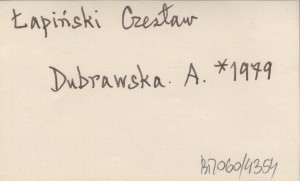 Łapiński Czesław
Dubrawska. A. *1979
B7060/4354